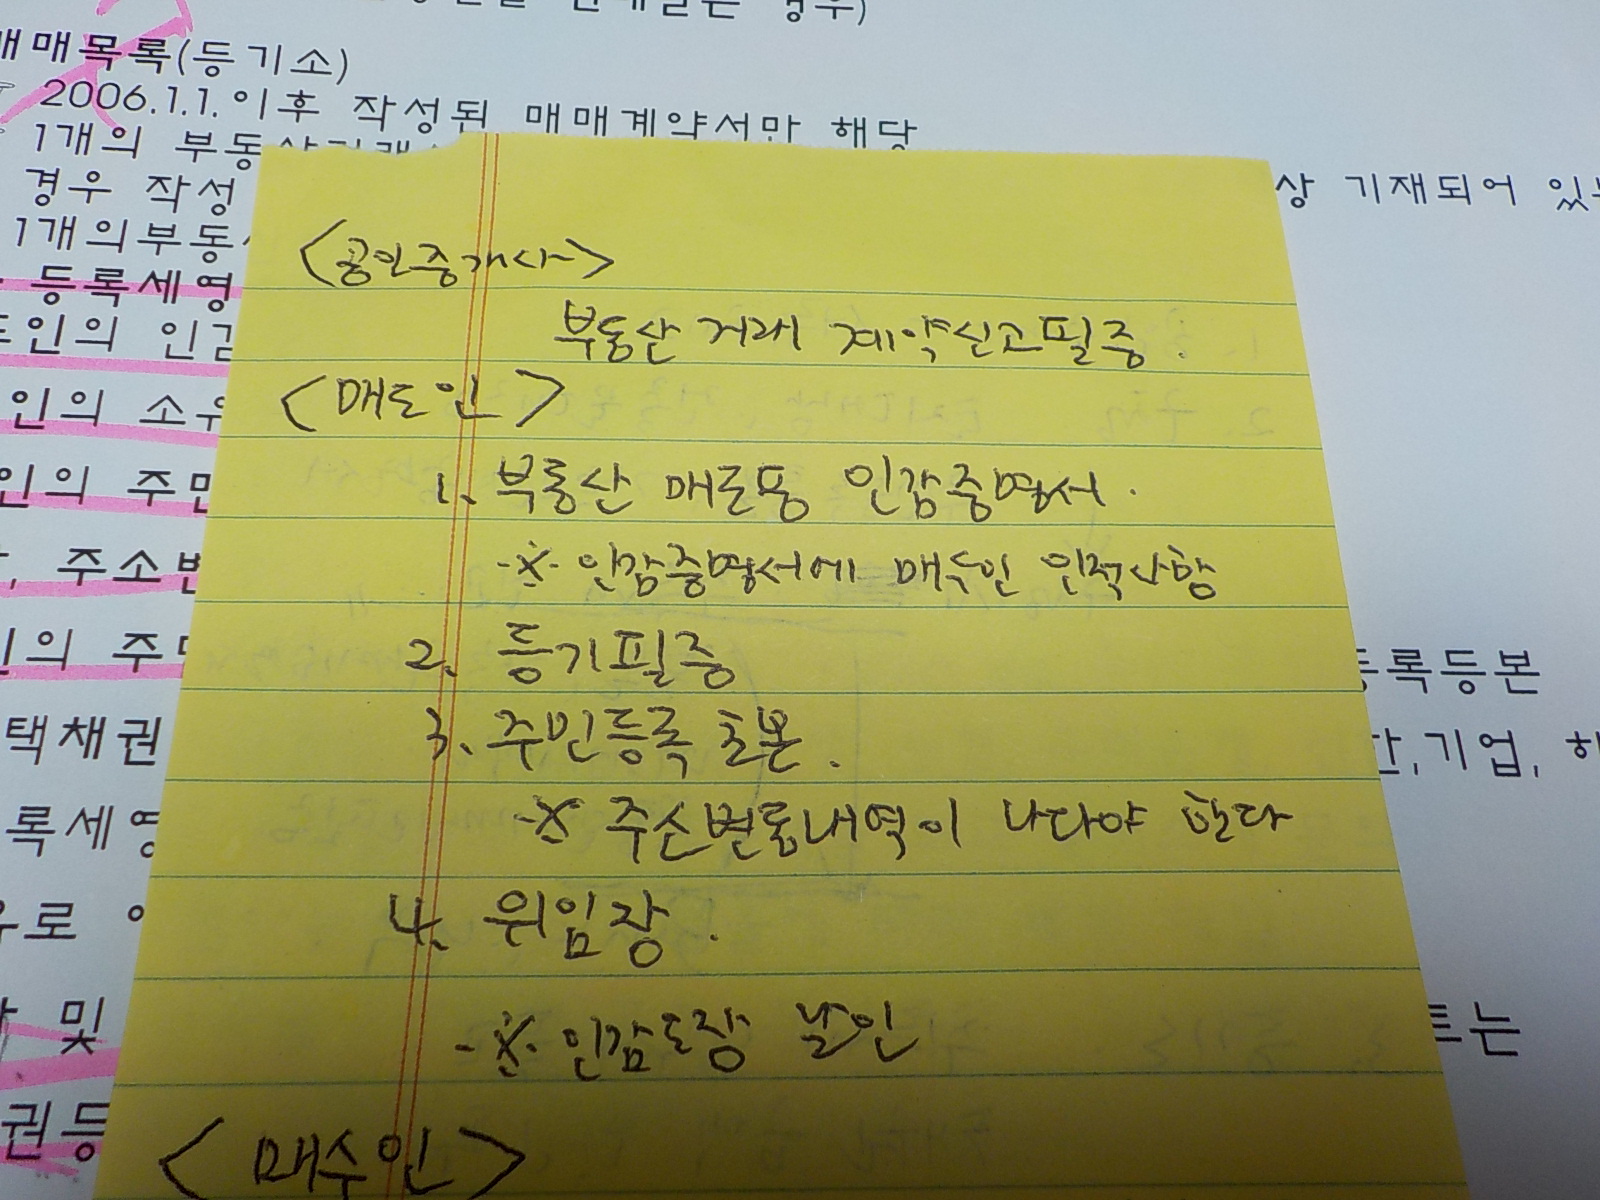 매매목록(등기소)
2006.1.1.이후 작성된 매매계약서만 해당
1개의
경우 작성
상 기재되어
1개의부동
등록세영
인의
인의
인의 주민
주소
의
등록등본
택채권
,기업,
록세영
로
및
트는
권등
<공인중개사>
부동산 거래 계약신고필증.
<매도인>
1. 부동산 매도용 인감증명서.
※ 인감증명서에 매수인 인적사항
2. 등기필증
3. 주민등록 초본.
※ 주소변동내역이 나타야 한다
4. 위임장.
※ 인감도장 날인
<매수인>